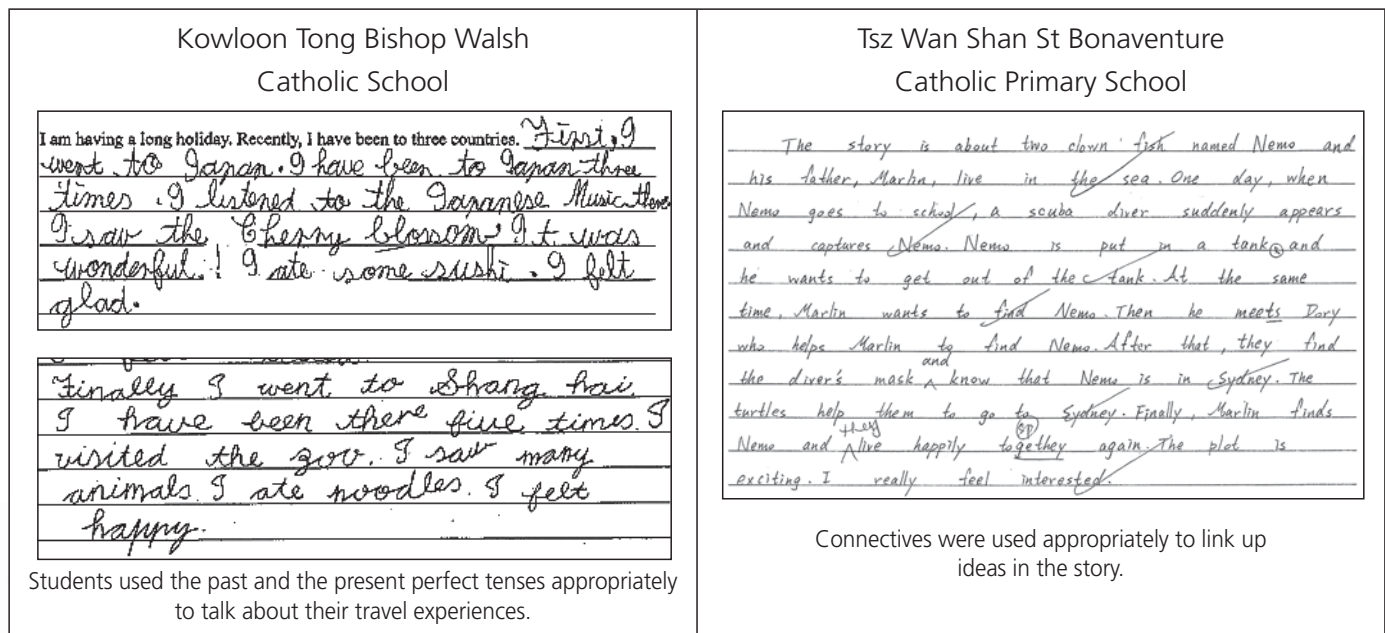 Kowloon Tong Bishop Walsh
Catholic School
I am having a long holiday. Recently, I have been to three countries. First, I
went to Japan. I have been to Japan three
times. I listened to the Japanese Music there.
I saw the Cherry blossom. It was
wonderful! I ate some sushi. I felt
glad.
Finally I went to Shang hai.
I have been there five times. I
visited the zoo. I saw many
animals. I ate noodles. I felt
happy.
Students used the past and the present perfect tenses appropriately
to talk about their travel experiences.
Tsz Wan Shan St Bonaventure
Catholic Primary School
The story is about two clown fish named Nemo and
his father, Marlin, live in the sea. One day, when
Nemo goes to school, a scuba diver suddenly appears
and captures Nemo. Nemo is put in a tank and
he wants to get out of the tank. At the same
time, Marlin wants to find Nemo. Then he meets Dory
who helps Marlin to find Nemo. After that, they find
and
the diver's mask ^ know that Nemo is in Sydney. The
turtles help them to go to Sydney. Finally, Marlin finds
they sp
Nemo and ^ live happily togethey again. The plot is
exciting. I really feel interested.
Connectives were used appropriately to link up
ideas in the story.